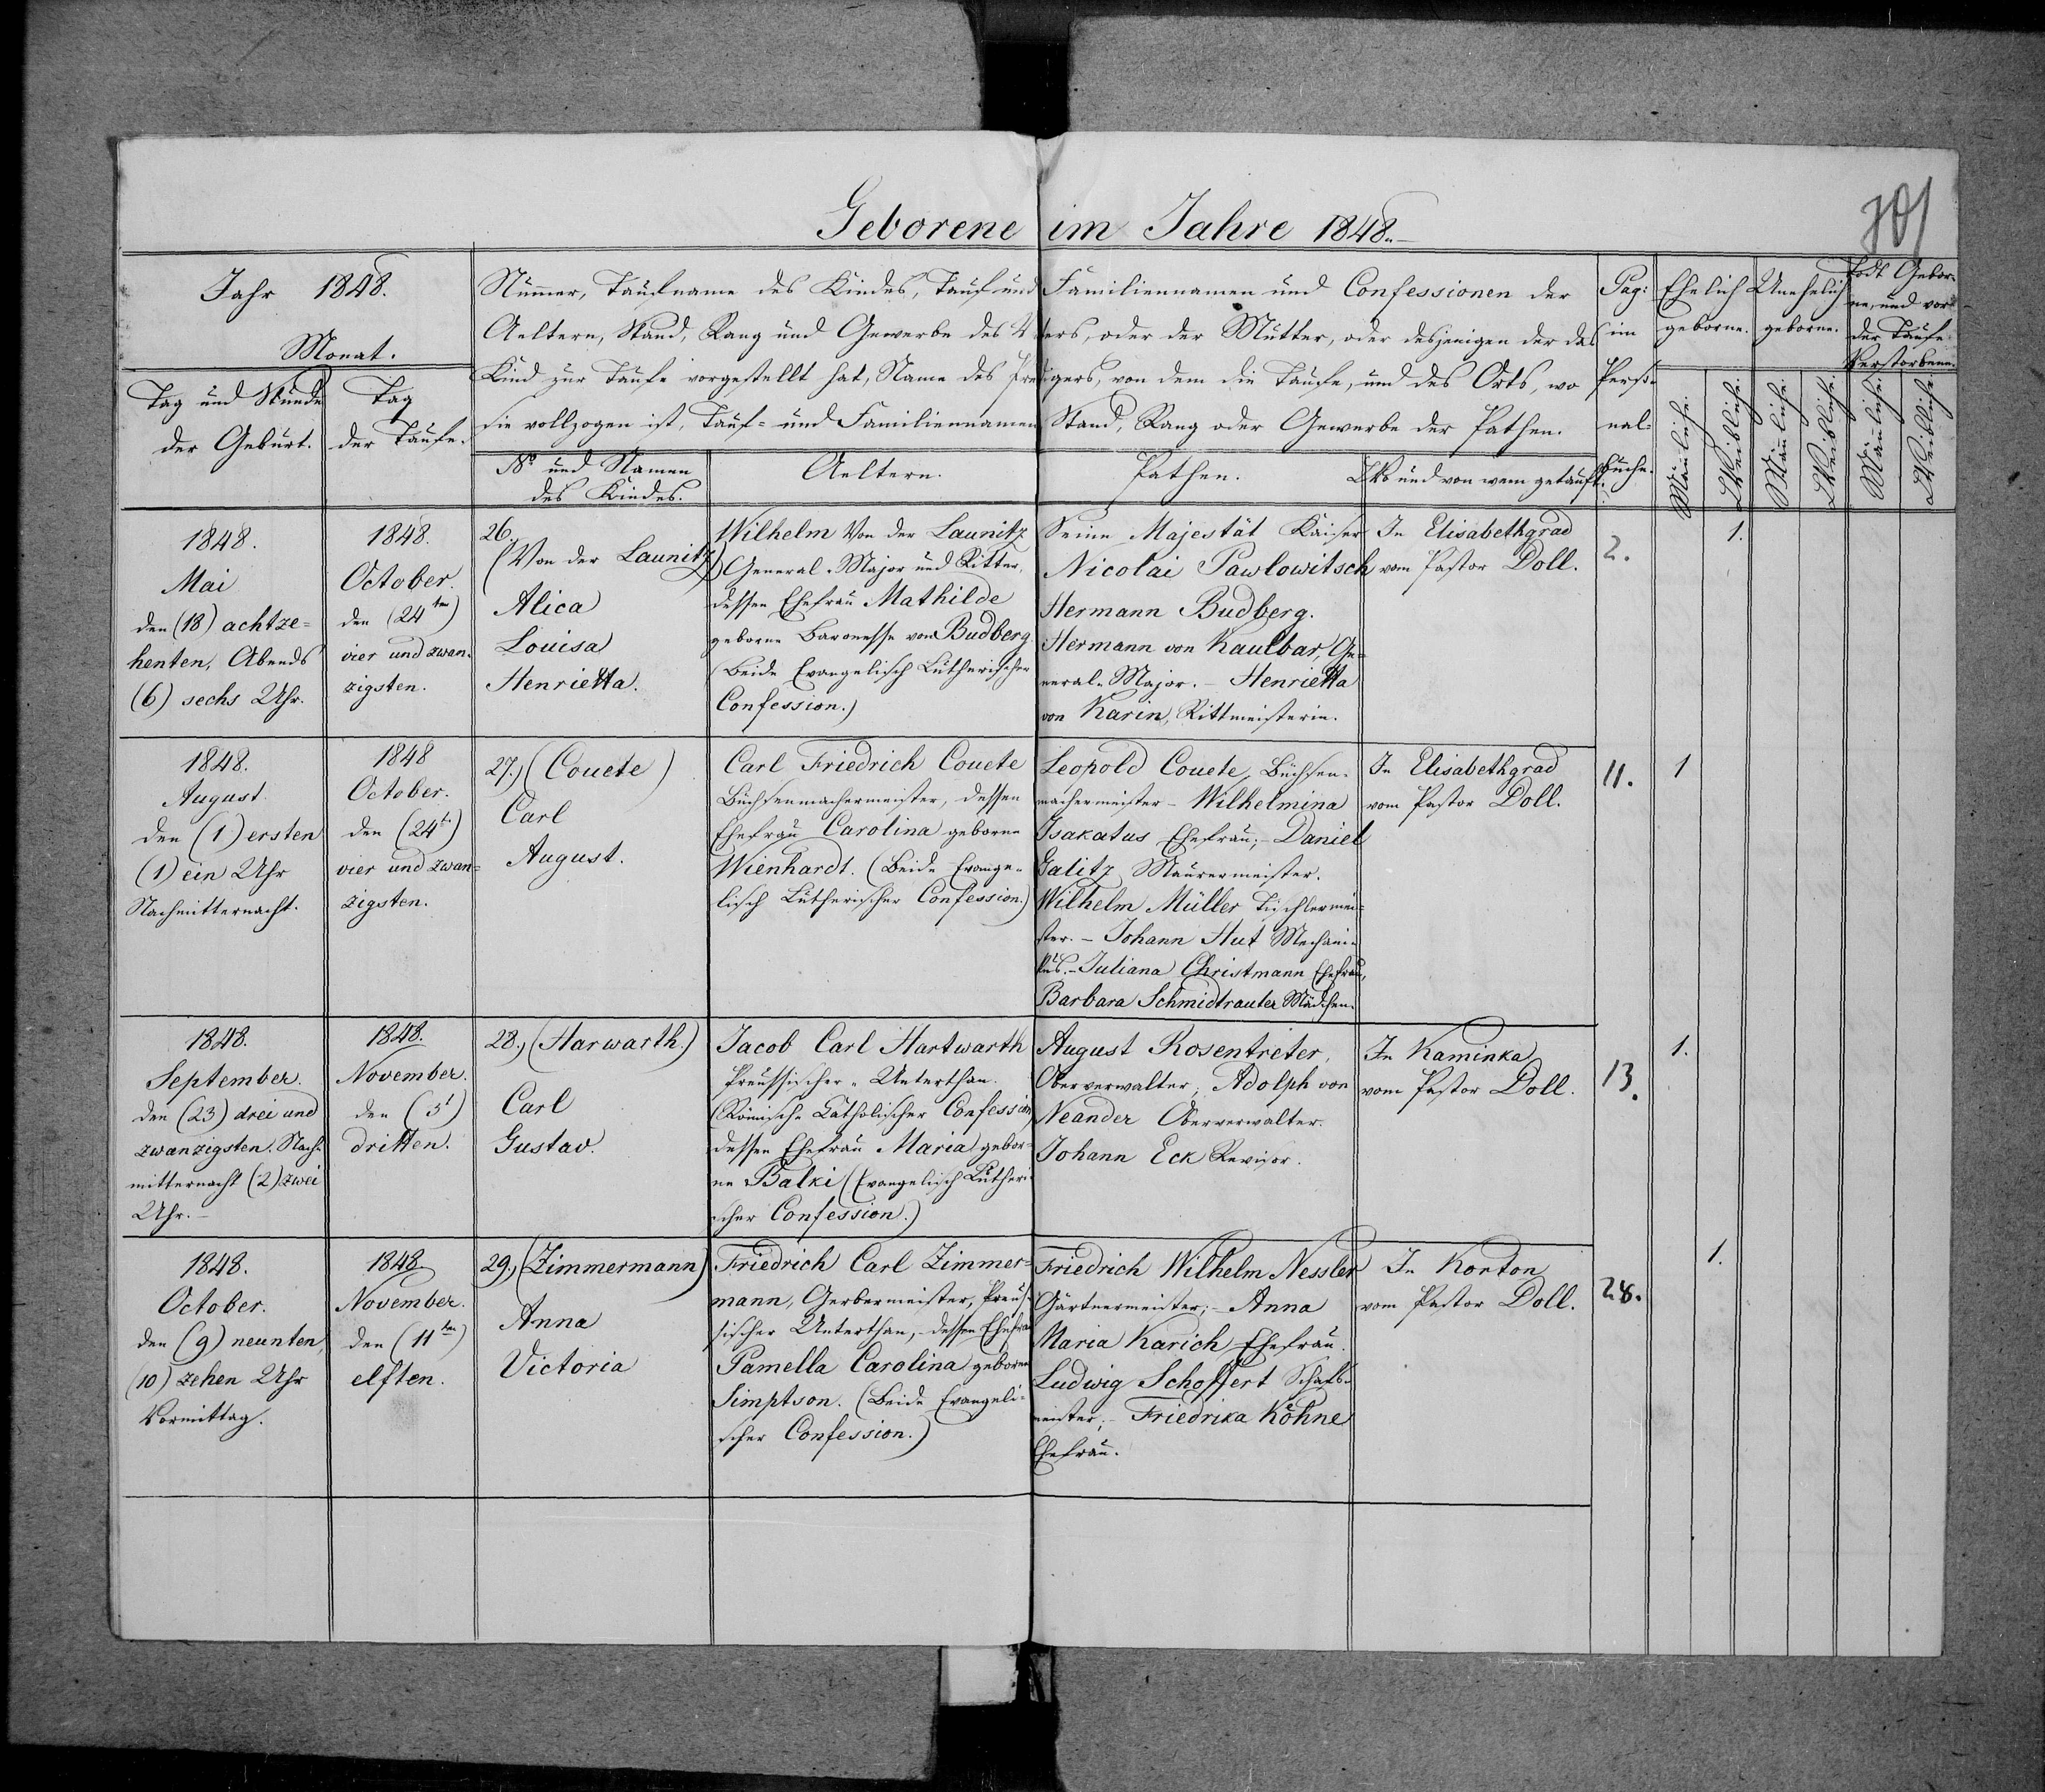 Geborene im Jahre 1848.
301
Jahr 1848.
Monat.
Tag und Stunde
der Geburt.
Tag
der Taufe.
Nummer, Taufname des Kindes, Tauf und Familiennamen und Confessionen der
Aeltern, Stand, Rang und Gewerbe des Vaters, oder der Mutter, oder desjenigen der das
Kind zur Taufe vorgestellt hat, Name des Predigers, von dem die Taufe, und des Orts, wo
sie vollzogen ist, Tauf- und Familiennamen Stand, Rang oder Gewerbe der Pathen.
No und Namen
des Kindes.
Aeltern.
Pathen.
Wo und von wem getauft.
Pag:
im
Perso-
nal-
buche.
Ehelich
geborne.
Unehelich
geborne.
Todt Gebor-
ne, und vor
der Taufe
Verstorbene.
Männliche.
Weibliche.
Männliche.
Weibliche.
Männliche.
Weibliche.
1848.
Mai
den (18) achtze-
henten, Abends
(6) sechs Uhr.
1848.
October.
den (24ten)
vier und zwan-
zigsten.
26.
(Von der Launitz)
Alica
Louisa
Henrietta.
Wilhelm Von der Launitz
General-Major und Ritter,
dessen Ehefrau Mathilde
geborne Baronesse von Budberg.
(Beide Evangelisch Lutherischer
Confession.)
Seine Majestät Kaiser
Nicolai Pawlowitsch
Hermann Budberg.
Hermann von Kaulbar, Ge-
neral-Major. - Henrietta
von Karin, Rittmeisterin.
In Elisabethgrad
vom Pastor Doll.
2.
1.
1848.
August
den (1) ersten
(1) ein Uhr
Nachmitternacht.
1848
October.
den (24t)
vier und zwan-
zigsten.
27.) (Couete)
Carl
August.
Carl Friedrich Couete
Büchsenmachermeister, dessen
Ehefrau Carolina geborne
Wienhardt. (Beide Evange-
lisch Lutherischer Confession.)
Leopold Couete, Büchsen-
machermeister - Wilhelmina
Isakatus Ehefrau; - Daniel
Galitz Maurermeister.
Wilhelm Müller Tischlermei-
ster. - Johann Hut Mechani-
kus. - Juliana Christmann Ehefrau,
Barbara Schmidtrauter Mädchen.
In Elisabethgrad
vom Pastor Doll.
11.
1
1848.
September.
den (23) drei und
zwanzigsten. Nach-
mitternacht (2) zwei
Uhr. -
1848.
November.
den (3t)
dritten.
28.) (Harwarth.)
Carl
Gustav.
Jacob Carl Hartwarth
Preussischer-Unterthan.
(Römisch-Catholischer Confession)
dessen Ehefrau Maria gebor-
ne Balki (Evangelisch Lutheri-
scher Confession.)
August Rosentreter,
Oberverwalter; Adolph von
Neander Oberverwalter.
Johann Eck Revisor.
In Kaminka
vom Pastor Doll.
13.
1.
1848.
October.
den (9) neunten,
(10) zehen Uhr
Vormittag.
1848.
November.
den (11ten)
elften.
29.) (Zimmermann)
Anna
Victoria
Friedrich Carl Zimmer-
mann, Gerbermeister, Preus-
sischer Unterthan, dessen Ehefrau
Pamella Carolina geborne
Simptson. (Beide Evangeli-
scher Confession.)
Friedrich Wilhelm Nessler
Gärtnermeister; - Anna
Maria Karich Ehefrau.
Ludwig Schoffert Schafs-
meister; - Friedrika Köhne
Ehefrau.
In Korton
vom Pastor Doll.
28.
1.